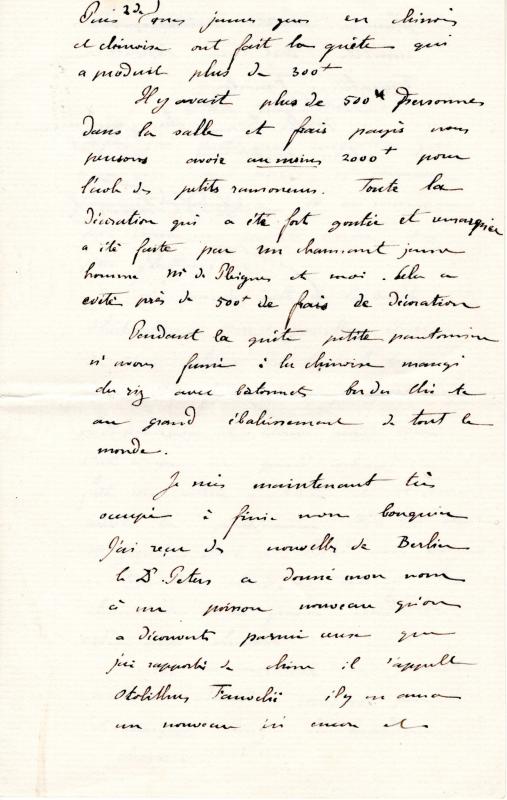 Puis 2 de mes jeunes gens en chinois
et chinoise ont fait la quête qui
a produit plus de 300+
Il y avait plus de 500 personnes
dans la salle et frais payés nous
pensons avoir au moins 2000+ pour
l'école des petits ramoneurs. Toute la
décoration qui a été fort goutée et
a été faite par un charmant jeune
homme Mr de Pleignes et moi. Cela a
coûté près de 500+ de frais de décoration
Pendant la quête petite pantomime
ns avons fumé à la chinoise mangé
du riz avec batonnets bu du thé
au grand de tout le
monde.
Je suis maintenant très
occupé à finir mon bouquin
J'ai reçu des nouvelles de Berlin
le Dr Peters a donné mon nom
à un poisson nouveau qu'on
a découvert parmi ceux que
j'ai rapportés de chine il s'appelle
Otolithus Fauvelii il y en aura
un nouveau ici encore et